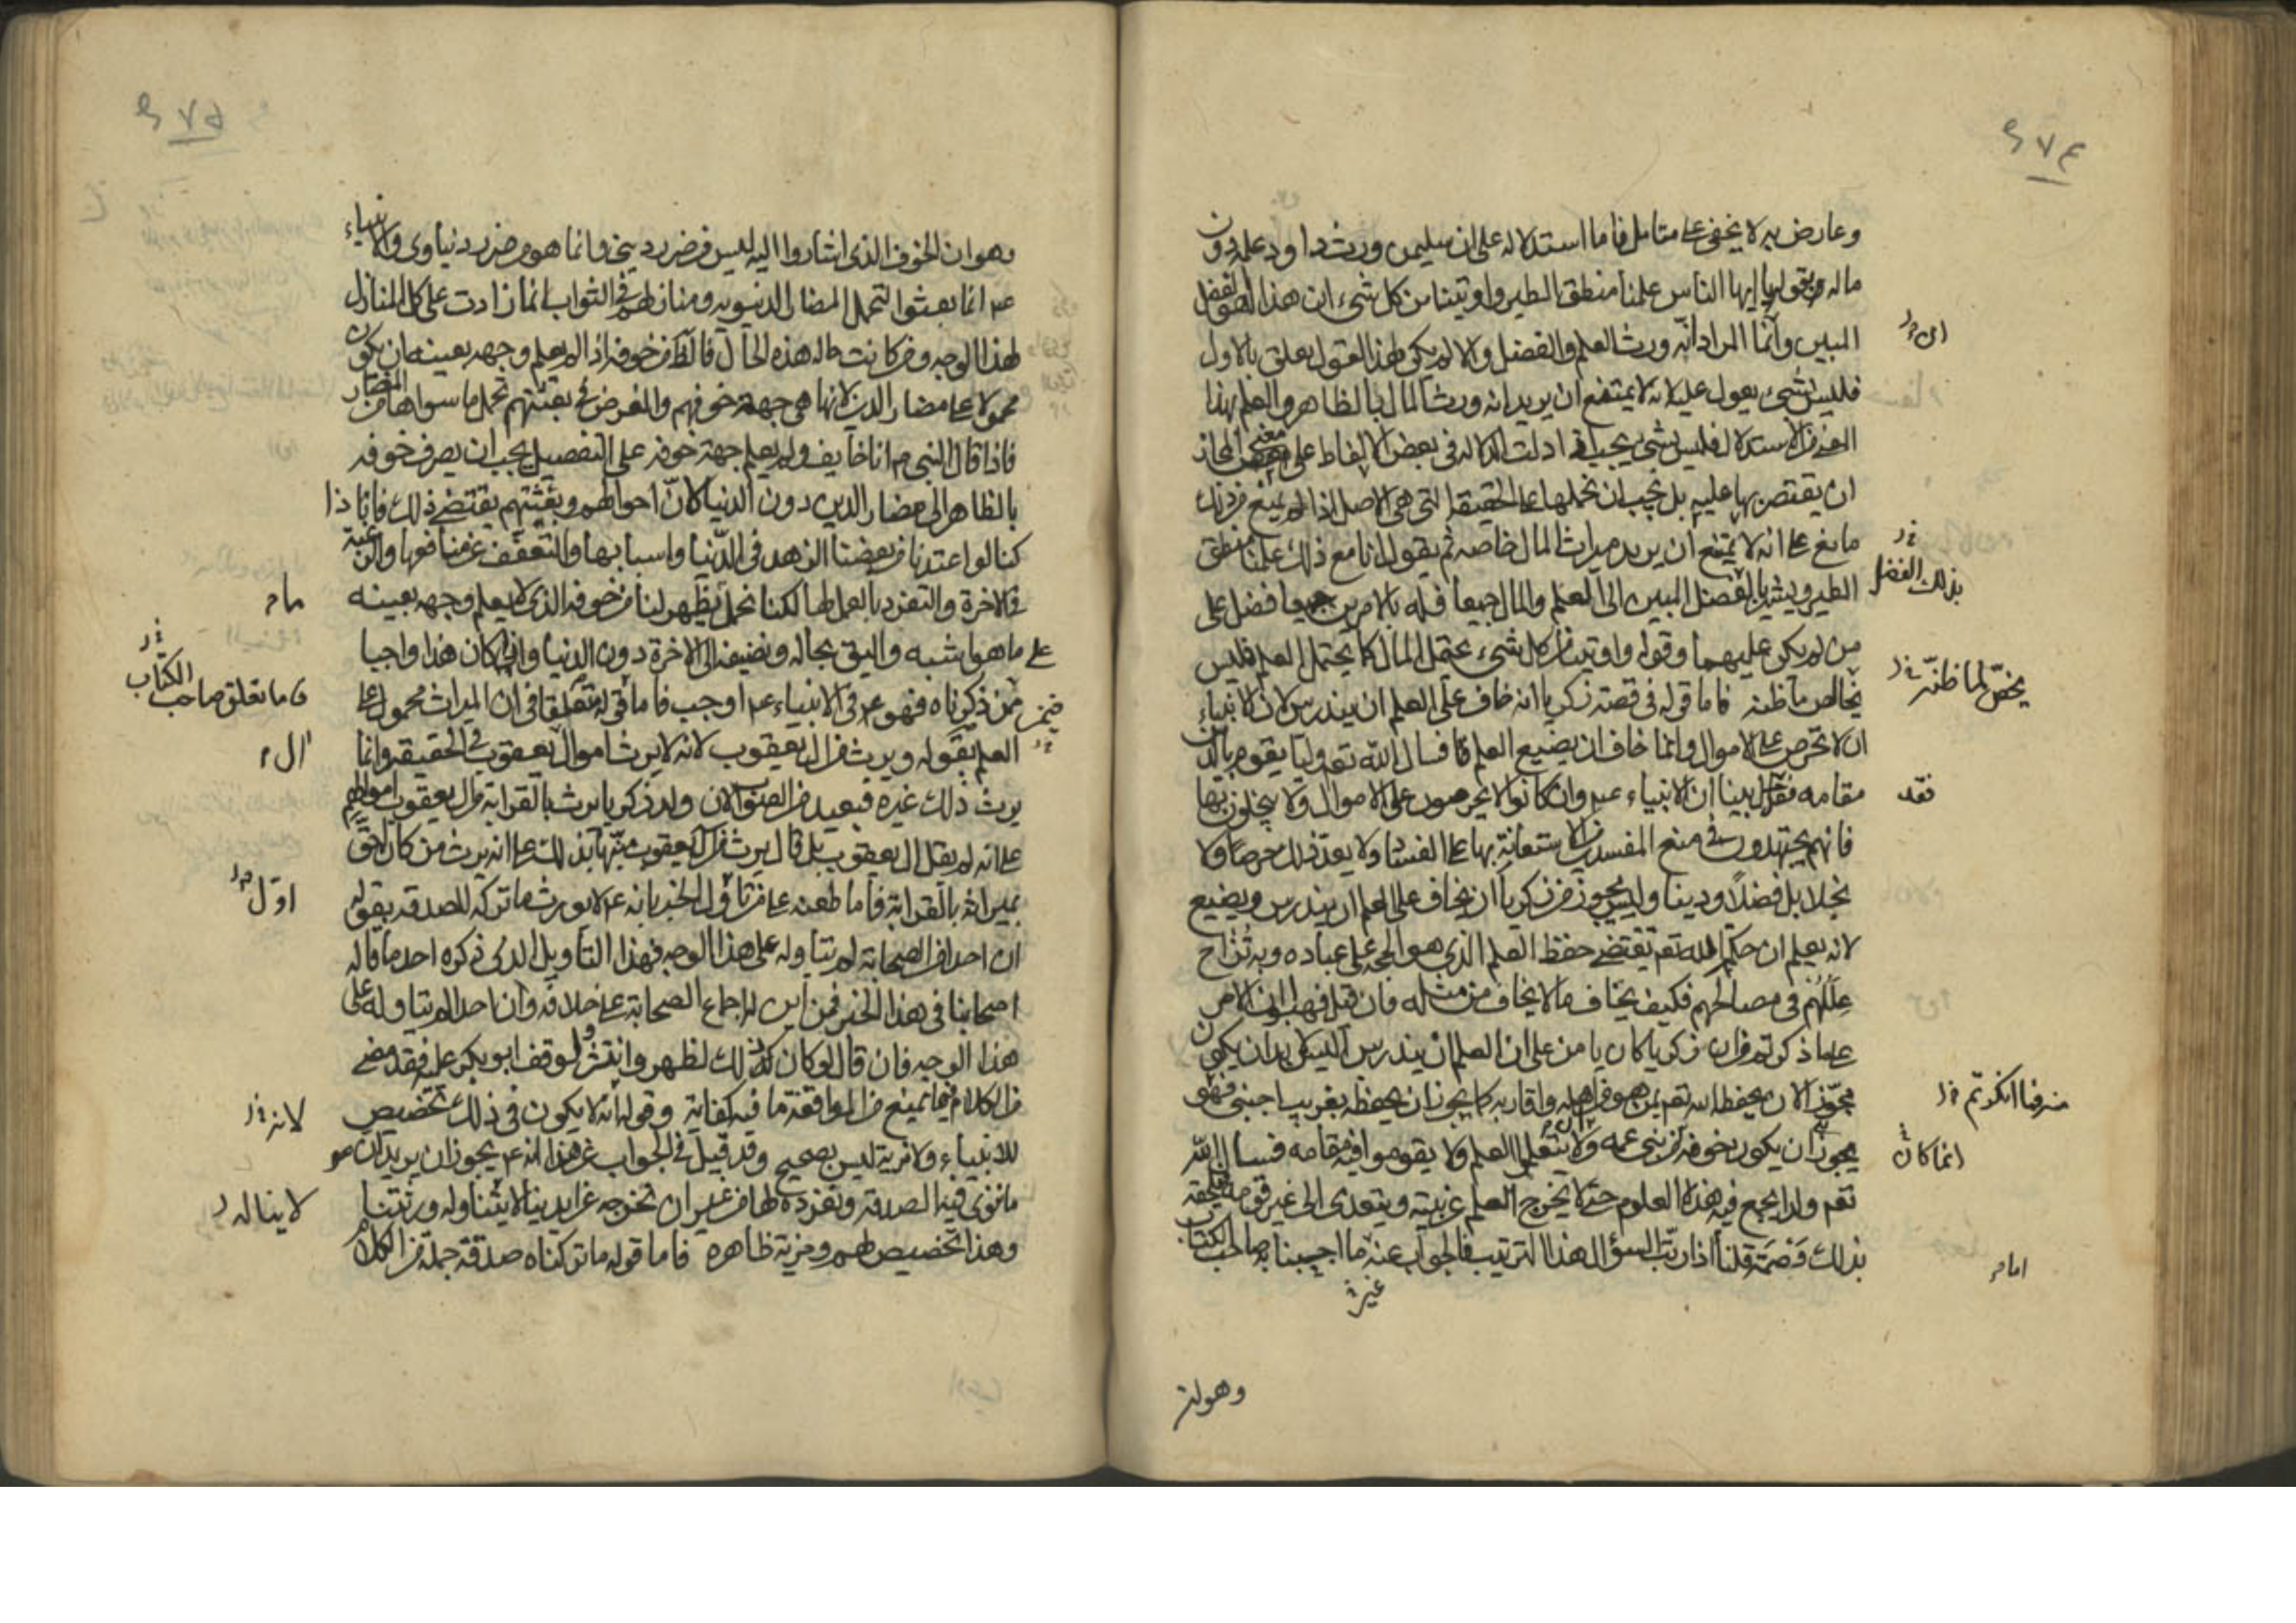 ٢٧٤
وعارض به لا يخفى على متامل فاما استدلاله على ان سليمن ورث داود علمه دون
ماله بقوله يا ايها الناس علمنا منطق الطير واوتينا من كل شىء ان هذا لهو الفضل
المبين وانما المراد انه ورث العلم والفضل والا لم يكن لهذا القول تعلق بالاول
فليس بشىء يعول عليه لانه لا يمتنع ان يريد انه ورث المال بالظاهر والعلم بهذا
الاستدلال فليس يجب اذا دلت الدلالة فى بعض الالفاظ على معنى المجاز
ان يقتصر بها عليه بل يجب ان نحملها على الحقيقة التى هى الاصل اذا لم يمنع من ذلك
مانع على انه لا يمتنع ان يريد ميراث المال خاصه ثم يقول انا مع ذلك علمنا منطق
الطير ويشير بالفضل المبين الى العلم والمال جميعا فله بالامرين جميعا فضل على
من لم يكن عليهما وقوله واوتينا من كل شىء يحتمل المال كما يحتمل العلم فليس
بخالص ما ظنه فاما قوله فى قصة زكريا انه خاف على العلم ان يندرس لان الانبياء
ان لا تحرص على الاموال وانما خاف ان يضيع العلم فسال الله تعه وليا يقوم بالدين
مقامه فقد بينا ان الانبياء عم وان كانوا لا يحرصون على الاموال ولا يبخلون بها
فانهم يجتهدون فى منع المفسدين من الاستعانة بها على الفساد ولا يعد ذلك حرصا ولا
بخلا بل فضلا ودينا وليس يجوز من زكريا ان يخاف على العلم ان يندرس ويضيع
لانه يعلم ان حكمة الله تعه تقتضى حفظ العلم الذى هو الحجه على عباده وبه تنزاح
عللهم فى مصالحهم فكيف يخاف ما لا يخاف من مثله فان قيل فهبوا ان الامر
على ما ذكرتم من ان زكريا كان يامن على ان العلم ان يندرس اليس لا بد ان يكون
مجوزا لان يحفظه الله تعه بمن هو من اهله واقاربه كما يجوز ان يحفظه بغريب اجنبى فهو
يجوز ان يكون خوفه من بنى عمه ولا يتعلموا العلم ولا يقوموا فيه مقامه فسال الله
تعه ولدا يجمع فيه هذه العلوم حتى لا يخرج العلم عن بيته ويتعدى الى غير قومه فيلحقه
بذلك وصمة قلنا اذا رتب السؤال هذا الترتيب فالجواب عنه ما اجبنا به صاحب الكتاب
بذلك الفضل
يخصّ لما ظنّه
فقد
منه فيما انكرتم
انما كان
اما
وهو ان
٢٧٥
وهو ان الخوف الذى اشاروا اليه ليس من ضرر دينى وانما هو من ضرر دنياوى والانبياء
عم انما بعثوا لتحمل المضار الدنيويه ومنازلهم فى الثواب انما زادت على كل المنازل
لهذا الوجه ومن كانت حاله هذه الحال فالظ من خوفه اذا لم يعلم وجهه بعينه ان يكون
محمولا على مضار الدين لانها هى جهة خوفهم والغرض فى بعثتهم تحمل ما سواها من المضار
فاذا قال النبى م انا خايف ولم يعلم جهة خوفه على التفصيل يجب ان يصرف خوفه
بالظاهر الى مضار الدين دون الدنيا لان احوالهم وبعثتهم يقتضى ذلك فانا اذا
كنا لو اعتدنا من بعضنا الزهد فى الدنيا واسبابها والتعفف عن منافعها والرغبة
فى الاخرة والتفرد بالعمل لها لكنا نحمل يظهر لنا من خوفه الذى لا يعلم وجهه بعينه
على ما هو اشبه واليق بحاله ونضيفه الى الاخرة دون الدنيا واذا كان هذا واجبا
من ذكرناه فهو فى الانبياء عم اوجب فاما قوله متعلقا فى ان الميراث محمول على
العلم بقوله ويرث من ال يعقوب لانه لا يرث اموال يعقوب فى الحقيقه وانما
يرث ذلك غيره فبعيد من الصواب لان ولد زكريا يرث بالقرابة من ال يعقوب اموالهم
على انه لم يقل ال يعقوب بل قال يرث من ال يعقوب منبها بذلك على انه يرث من كان احق
بميراثه بالقرابة فاما طعنه على من تاول الخبر بانه عم لا يورث ما تركه للصدقه بقوله
ان احدا من الصحابة لم يتاوله على هذا الوجه فهذا التاويل الذى ذكره احد ما قاله
اصحابنا فى هذا الخبر فمن اين له اجماع الصحابة على خلافه وان احدا لم يتاوله على
هذا الوجه فان قال لو كان ذلك لظهر وانتشر ولوقف ابو بكر عليه فقد مضى
من الكلام فيما يمنع من الموافقة ما فيه كفاية وقوله انه لا يكون فى ذلك تخصيص
للانبياء ولا مزية ليس بصحيح وقد قيل فى الجواب عن هذا انه عم يجوز ان يريد ان
ما ننوى فيه الصدقه ونفرده لها من غير ان نخرجه عن ايدينا لا يتناوله ورثتنا
وهذا تخصيص لهم ومزية ظاهرة فاما قوله ما تركناه صدقة جملة من الكلام
ما
فاما تعلق صاحب الكتاب
ال
اوّل
لانه
لا يناله